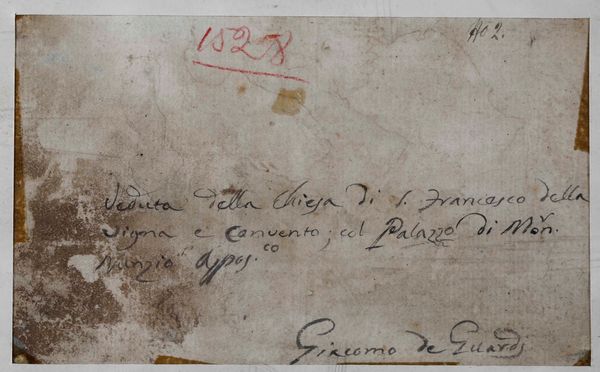 1528
No 2.
Veduta della Chiesa di S. Francesco della
Vigna e Convento; col Palazzo di Mōn.r
Nunzio Appos.co
Giacomo de Guardi